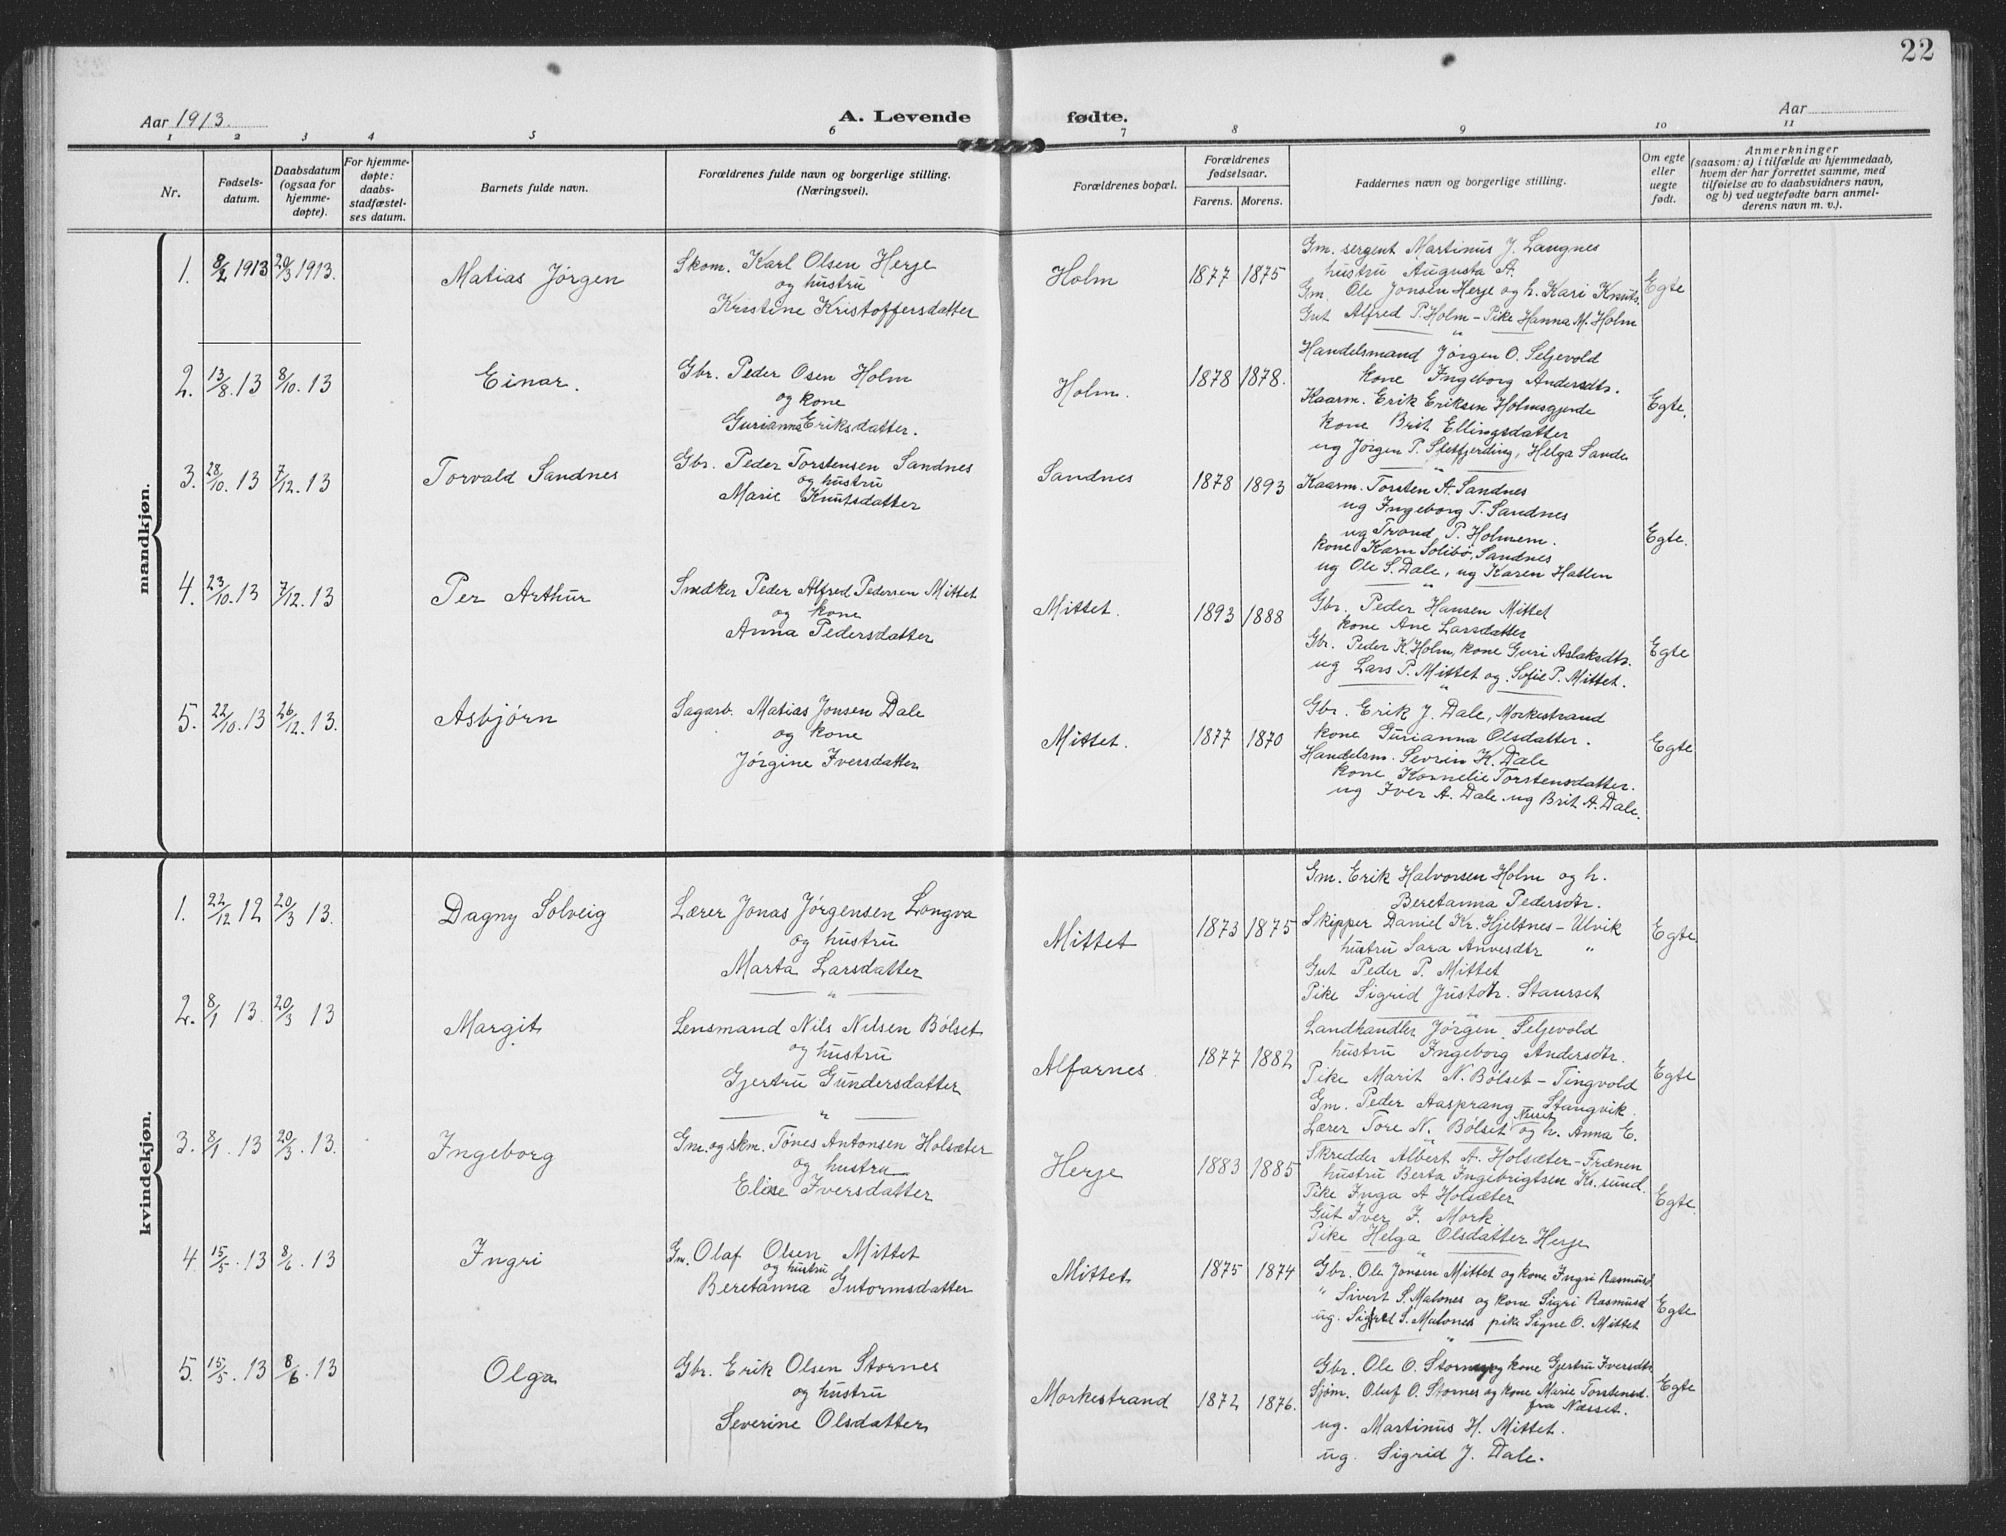 22
Aar 1913.
A. Levende fødte.
Aar
1 2 3 4 5 6 7 8 9 10 11
Nr.
Fødsels-
datum.
Daabsdatum
(ogsaa for
hjemme-
døpte).
For hjemme-
døpte:
daabs-
stadfæstel-
ses datum.
Barnets fulde navn.
Forældrenes fulde navn og borgerlige stilling.
(Næringsvei).
Forældrenes bopæl.
Forældrenes
fødselsaar.
Farens. Morens.
Faddernes navn og borgerlige stilling.
Om egte
eller
uegte
født.
Anmerkninger
(saasom: a) i tilfælde av hjemmedaab,
hvem der har forrettet samme, med
tilføielse av to daabsvidners navn,
og b) ved uegtefødte barn anmel-
derens navn m. v.).
mandkjøn.
1. 8/2 1913 20/3 1913. Matias Jørgen
Skom. Karl Olsen Herje
og hustru
Kristine Kristoffersdatter
Holm 1877 1875
Gm. sergent Martinus J. Langnes
hustru Augusta A.
Gm. Ole Jonsen Herje og h. Kari Knuts.
Gut Alfred P. Holm - Pike Hanna M. Holm
Egte
2. 13/8. 13 8/10. 13 Einar.
Gbr. Peder Osen Holm
og kone
Gurianna Eriksdatter.
Holm. 1878 1878.
Handelsmand Jørgen O. Seljevold
kone Ingeborg Andersdtr.
Kaarm. Erik Eriksen Holmsgjerde
kone Brit Ellingsdatter
ug Jørgen P. Sletfjerding, Helga Sande
Egte.
3. 28/10. 13 7/12. 13 Torvald Sandnes
Gbr. Peder Torstensen Sandnes
og hustru
Marie Knutsdatter
Sandnes 1878 1893
Kaarm. Torsten A. Sandnes
ug Ingeborg T. Sandnes
ug Trond P. Holmem.
kone Karn Solibö, Sandnes
ug Ole S. Dale, ug Karen Hatlen
Egte.
4. 23/10. 13 7/12. 13 Per Arthur
Snedker Peder Alfred Pedersen Mittet
og kone
Anna Pedersdatter
Mittet. 1893 1888
Gbr. Peder Hansen Mittet
kone Ane Larsdatter
Gbr. Peder K. Holm, kone Guri Aslaksdtr.
ug Lars P. Mittet og Sofie P. Mittet.
Egte
5. 22/10. 13 26/12. 13. Asbjørn
Sagarb. Matias Jonsen Dale
og kone
Jørgine Iversdatter
Mittet. 1877 1870
Gbr. Erik J. Dale, Morkestrand
kone Gurianna Olsdatter.
Handelsm. Sevrin K. Dale
kone Kornelie Torstensdatter.
ug Iver A. Dale. ug Brit A. Dale.
Egte
kvindekjøn.
1. 22/12 12 20/3 13. Dagny Solveig
Lærer Jonas Jørgensen Longva
og hustru
Marta Larsdatter
Mittet 1873 1875
Gm. Erik Halvorsen Holm og h.
Beretanna Pedersdtr.
Skipper Daniel Kr. Hjeltnes - Ulvik
hustru Sara Anvesdtr "
Gut Peder P. Mittet
Pike Sigrid Justdtr. Staurset
Egte
2. 8/1 13. 20/3 13 Margit
Lensmand Nils Nilsen Bölset
og hustru
Gjertru Gundersdatter
Alfarnes. 1877 1882
Landhandler Jørgen Seljevold
hustru Ingeborg Andersdtr.
Pike Marit N. Bölset - Tingvold
Gm. Peder Aasprang Stangvik.
Lærer Tore N. Bölset Nesset og h. Anna E.
Egte
3. 8/1. 13 20/3. 13. Ingeborg
Gm. og skm. Tönes Antonsen Holsæter
og hustru
Elise Iversdatter
Herje 1883 1885
Skredder Albert A. Holsæter - Frænen
hustru Berta Ingebrigtsen Kr. sund.
Pike Inga A Holsæter
Gut Iver I. Mork
Pike Helga Olsdatter Herje
Egte.
4. 15/5. 13 8/6. 13 Ingri
Gm. Olaf Olsen Mittet
og hustru
Beretanna Gutormsdatter
Mittet 1875 1874
Gbr. Ole Jonsen Mittet og kone Ingri Rasmusd
" Sivert S. Malones og kone Sigri Rasmusd
ug. S. Malones pike Signe O. Mittet
Egte
5. 15/5. 13 8/6. 13 Olga
Gbr. Erik Olsen Stornes
og hustru
Severine Olsdatter
Morkestrand 1872 1876.
Gbr. Ole O. Stornes og kone Gjertru Iversdtr
Sjöm. Oluf O. Stornes og kone Marie Torstensd.
fra Næsset.
ug. Martinus H. Mittet.
ug. Sigrid J. Dale.
Egte